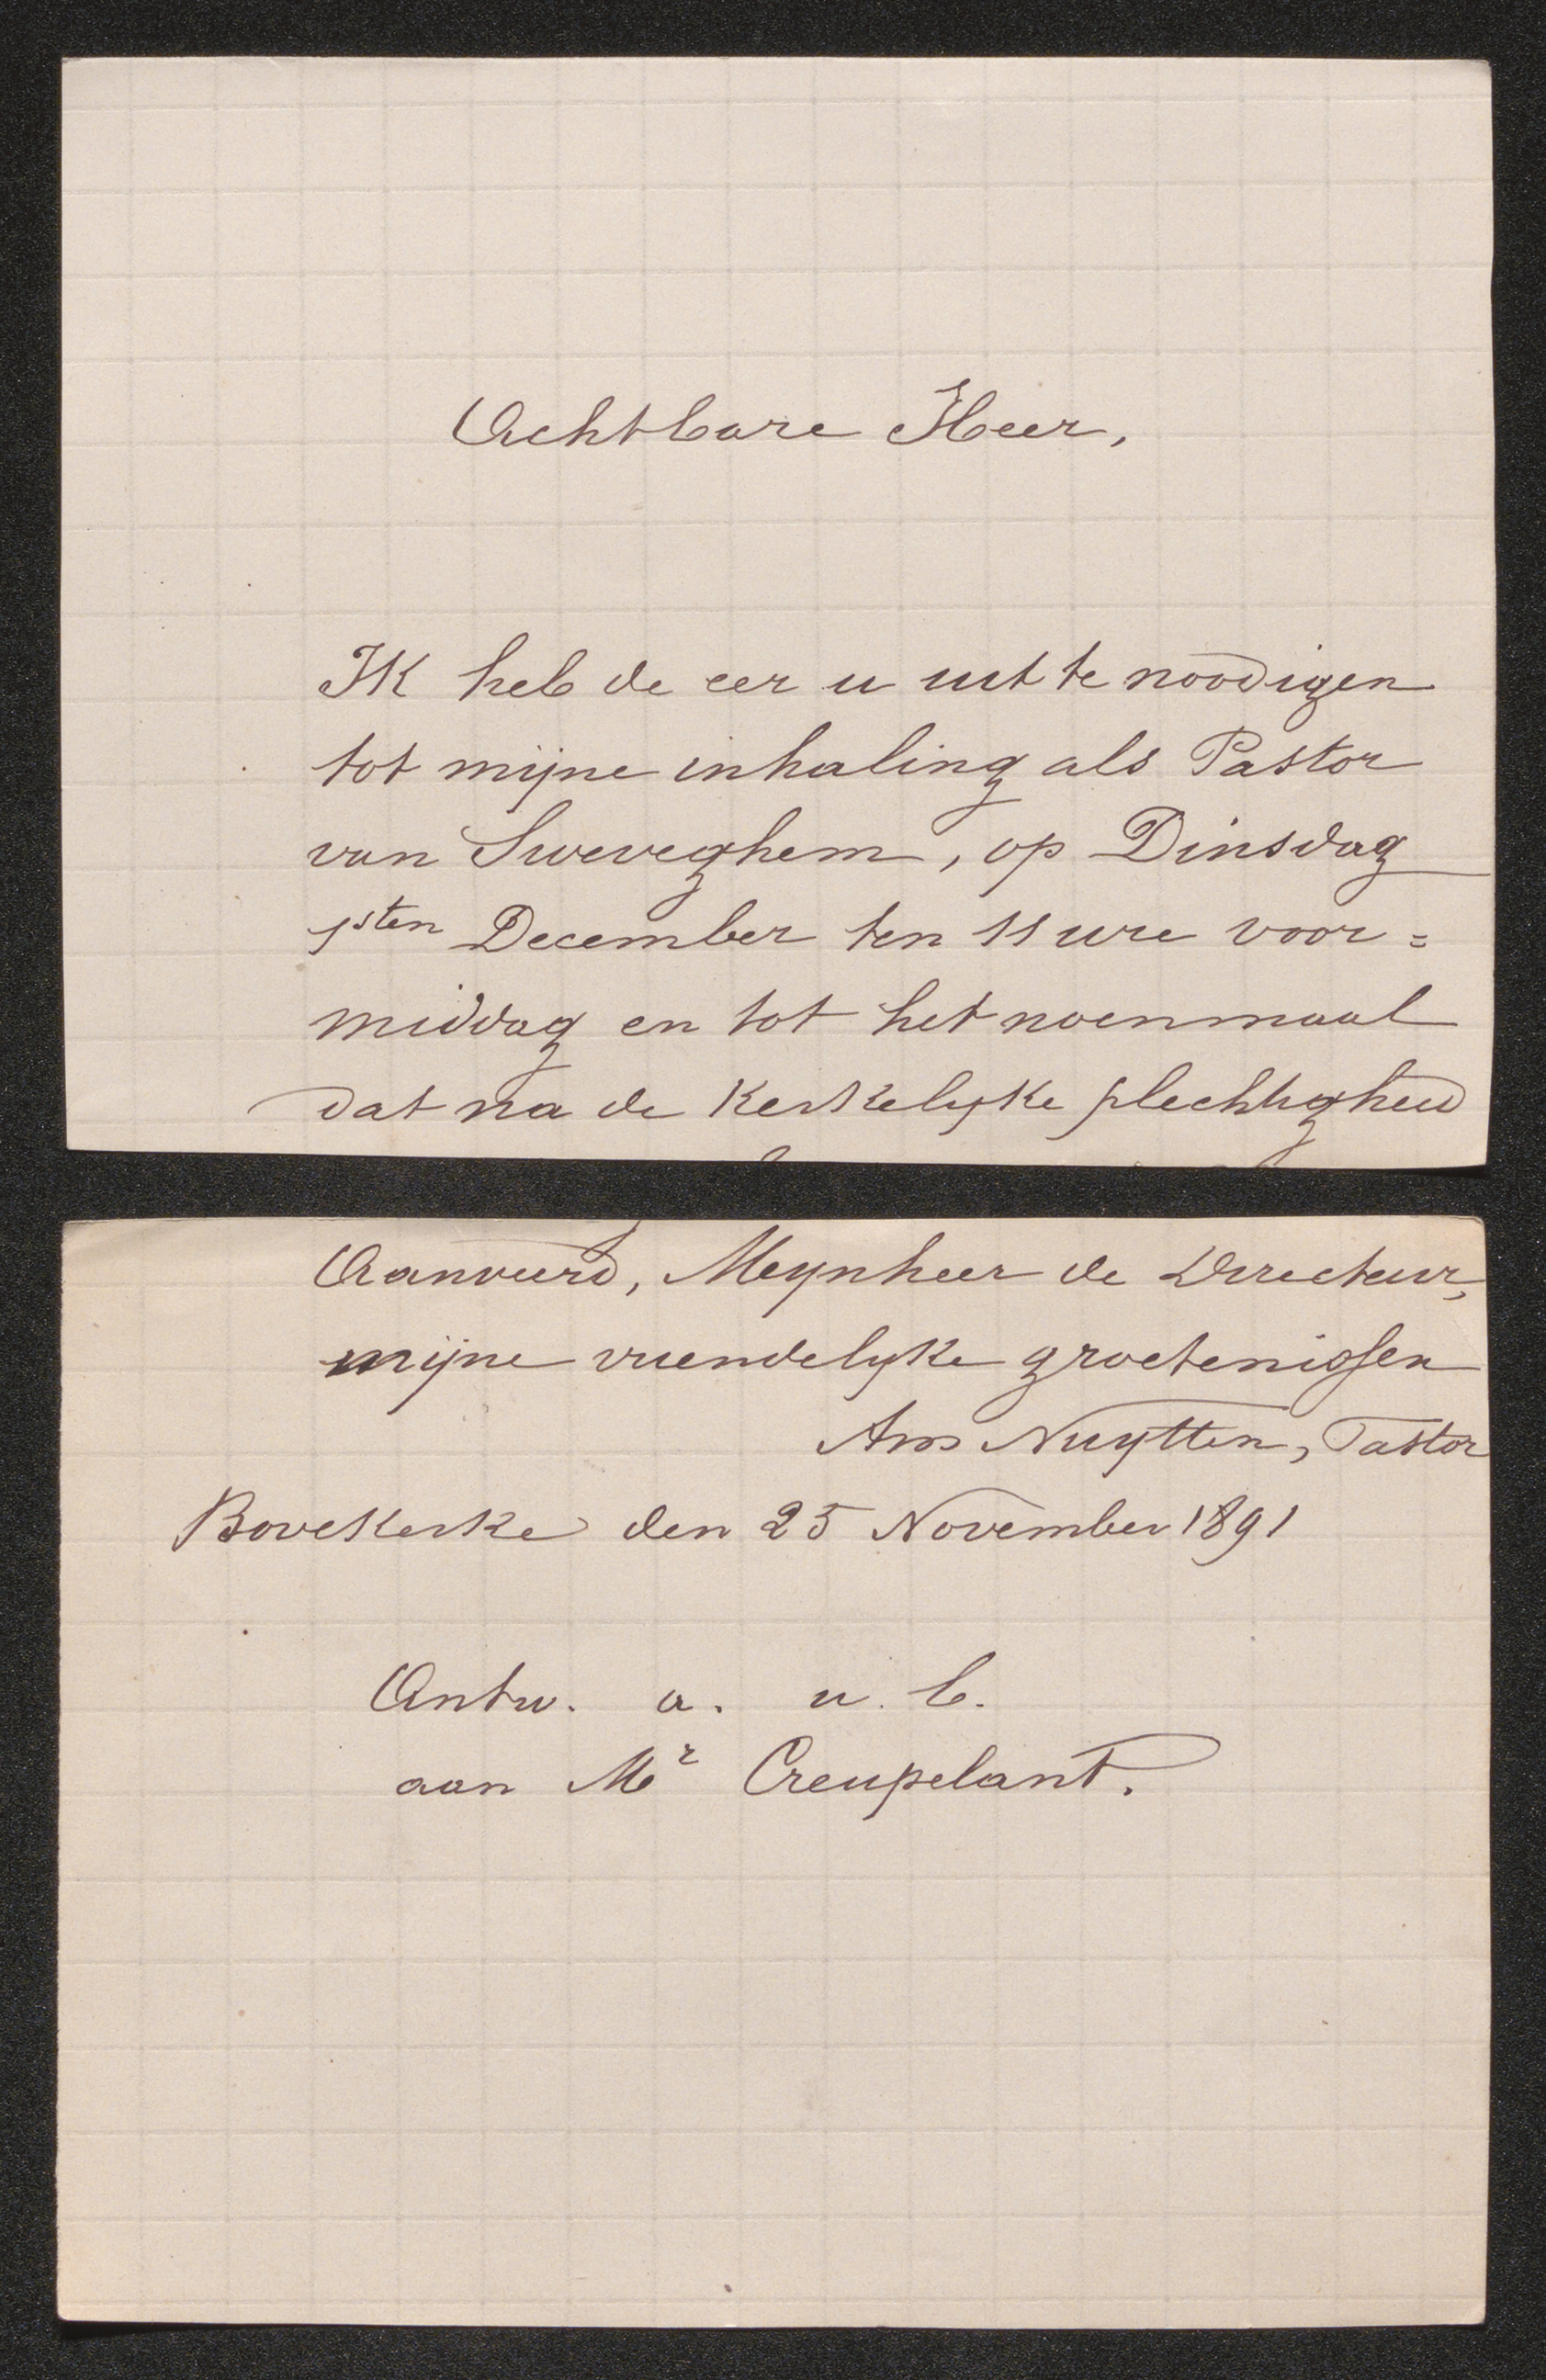 Achtbare Heer,
Ik heb de eer u uit te noodigen
tot mijne inhaling als Pastor
van Sweveghem, op Dinsdag
1sten December ten 11 ure voor=
middag en tot het noenmaal
dat na de kerkelyke plechtigheid
Aanveerd, Meynheer de Directeur,
mijne vriendelyke groetenissen
Am Nuytten, Pastor
Bovekerke den 25 November 1891
Antw. a. u. b.
aan Mr Creupelant.